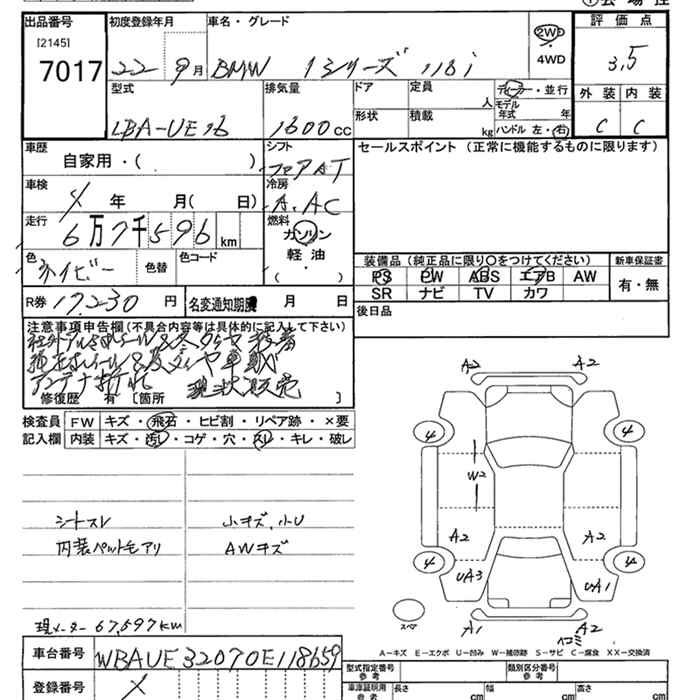 出品番号
[2145]
7017
初度登録年月
22 9月
車名・グレード
BMW 1シリーズ 118i
2WD
4WD
評価点
3.5
外装 内装
C C
型式
LBA-UE16
排気量
1600cc
ドア
形状
定員
人
積載
kg
ディーラー・並行
モデル年式 年
ハンドル 左・右
車歴
自家用・( )
シフト
フロアAT
車検
X 年 月( 日)
冷房
A.AC
走行
6万7千596km
燃料
ガソリン
軽油
( )
色
ネイビー
色替
色コード
セールスポイント (正常に機能するものに限ります)
装備品 (純正品に限り○をつけてください)
新車保証書
PS PW ABS エアB AW
SR ナビ TV カワ
有・無
R券 17,230 円
名変通知期限 月 日
後日品
注意事項申告欄(不具合内容等は具体的に記入して下さい)
社外アルミホイール&冬タイヤ装着
純正ホイール&夏タイヤ車載
アンテナ折れ 現状販売
修復歴 有 [箇所 ]
検査員記入欄
FW キズ・飛石・ヒビ割・リペア跡・×要
内装 キズ・汚レ・コゲ・穴・スレ・キレ・破レ
シートスレ
小キズ、小U
内装ペットモアリ
AWキズ
現メーター 67,597km
A2 A2
4 4
W2
A2 A2
4 4
UA3 UA1
スペア
A1 A2
A-キズ E-エクボ U-凹み W-補修跡 S-サビ C-腐食 XX-交換済
車台番号
WBAUE32070E118659
登録番号
X
型式指定番号
参考
類別区分番号
参考
車庫証明用
参考
長さ cm
幅 cm
高さ cm